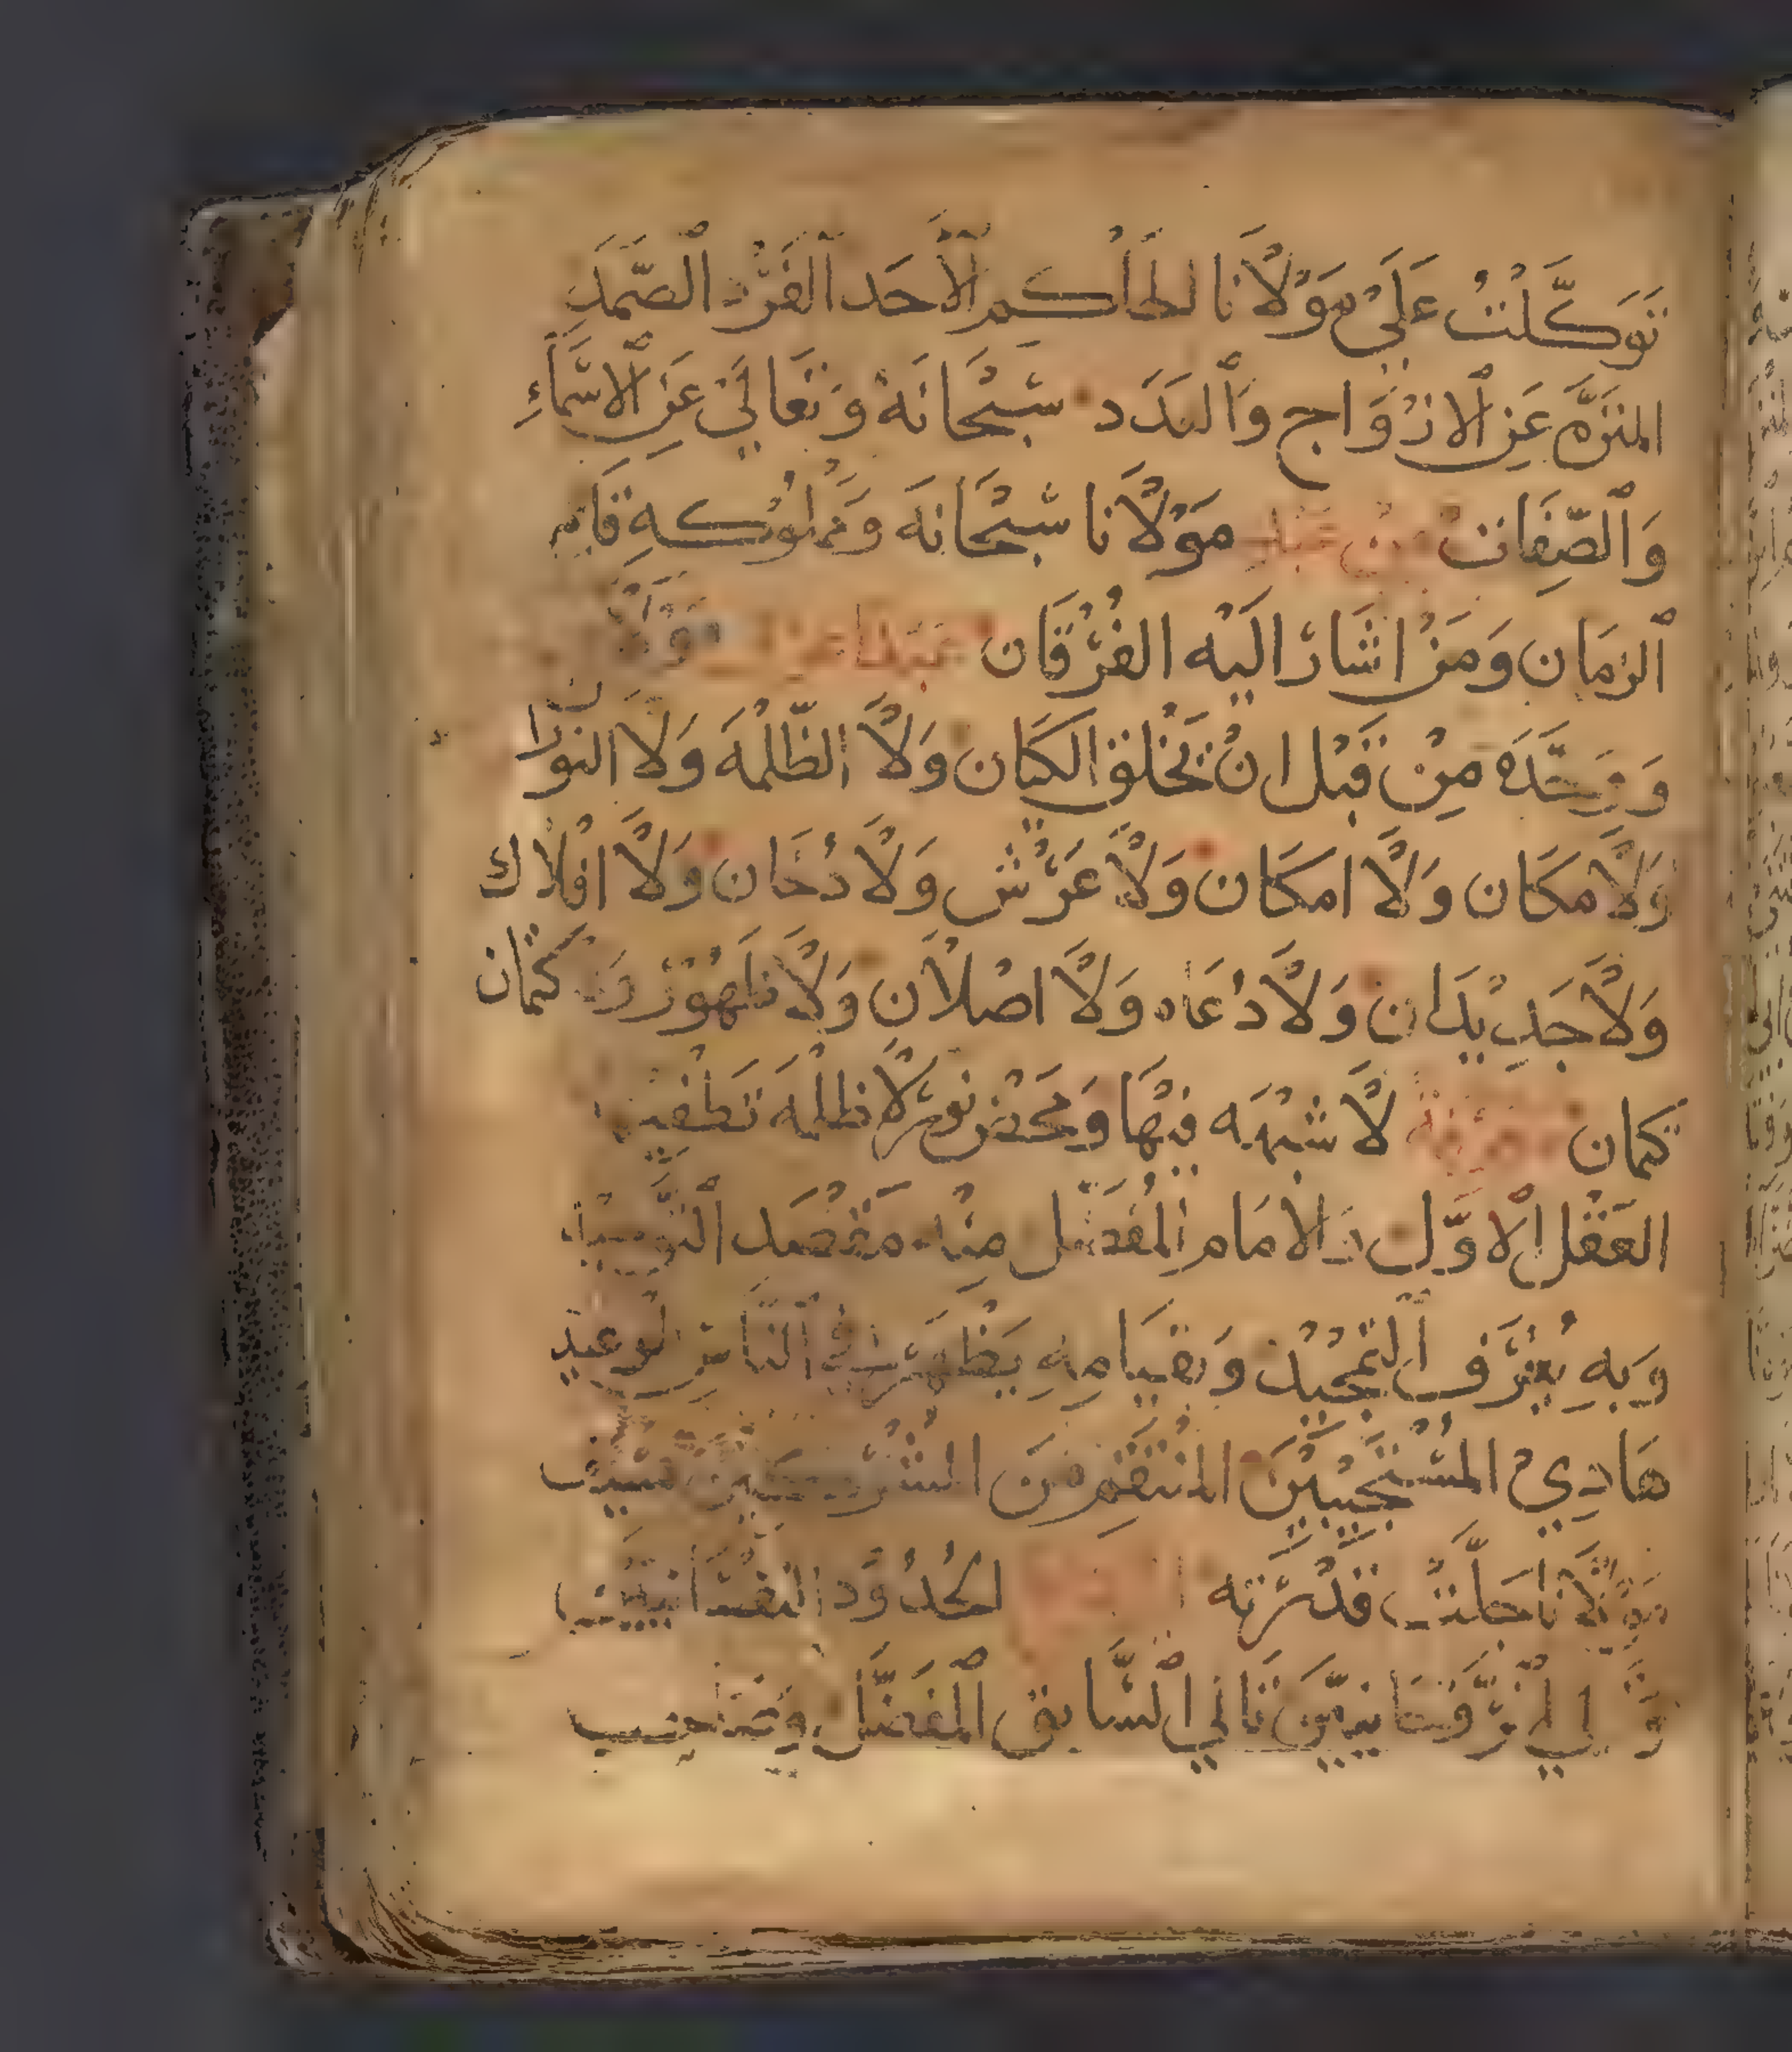 تَوَكَّلْتُ عَلَيْ مَوْلَانَا الحَاْكم الأَحَد الفَرْد الصَّمَد
المنَزَّه عَنِ الازْوَاج وَالعَدَد سُبْحَانَهُ وَتَعَالَيْ عَنِ الاسْمَاءِ
وَالصِّفَات مِنْ عَبْد مَوْلَانَا سُبْحَانَهُ وَمَملُوْكهِ قَايم
الزمَان وَمَنْ اشَارَ اليْه الفُرْقَان
مِنْ قَبْل انْ يَخْلق الكيَان وَلَا الظّلْمَه وَلَا النوْرَان
وَلَا مكَان وَلَا امكَان وَلَا عَرْش وَلَا دُخَان وَلَا افْلَاك
وَلَا جَدِيدَان وَلَا دُعَاه وَلَا اصْلَان وَلَا وَ كتْمَان
كتمان لَا شبْهَه فيْهَا وَمَحَض نوْر لَا ظلمَه تطْفيه
العَقْل الاوَّل الامَام المُفَضَّل منْه مَقْصَد
وَبهِ يُعْرَف التمْجيْد وَبقيَامهِ يَظْهَر فِي النَّاس الوعيد
هَادِيْ المُسْتَجيْبيْنَ المُنتَقِم منَ المُشْرِكيْن بسَيْف
مَوْلَانَا جَلَّت قدْرَته الحُدُوْد النفْسَانيين
تَالي السَّابق المفَضَّل وصَاحب